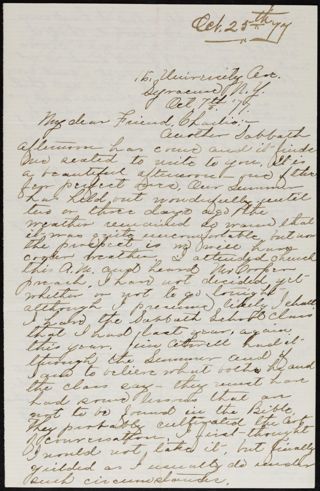 Oct. 25th 77
16 University Av.
Syracuse, N.Y.
Oct 7th '77
My dear Friend Charlie:-
Another Sabbath
afternoon has come and it finds
me seated to write to you. It is
a beautiful afternoon one of the
few perfect ones. Our Summer
has held out wonderfully until
two or three days ago the
weather remained so warm that
it was quite uncomfortable, but now
the prospect is we will have
cooler weather. I attended church
this A.M. and heard Mr
preach. I have not decided yet
whether or not to go tonight
although I presume likely I shall.
I have the Sabbath School Class
that I had last year, again
this year. had it
through the Summer and if
I am to believe what both he and
the class say - they must have
had some lessons that are
not to be found in the Bible.
They probably cultivated the Art
of Conversation. I first thought
I would not take it, but finally
yielded as I usually do under
such circumstances.